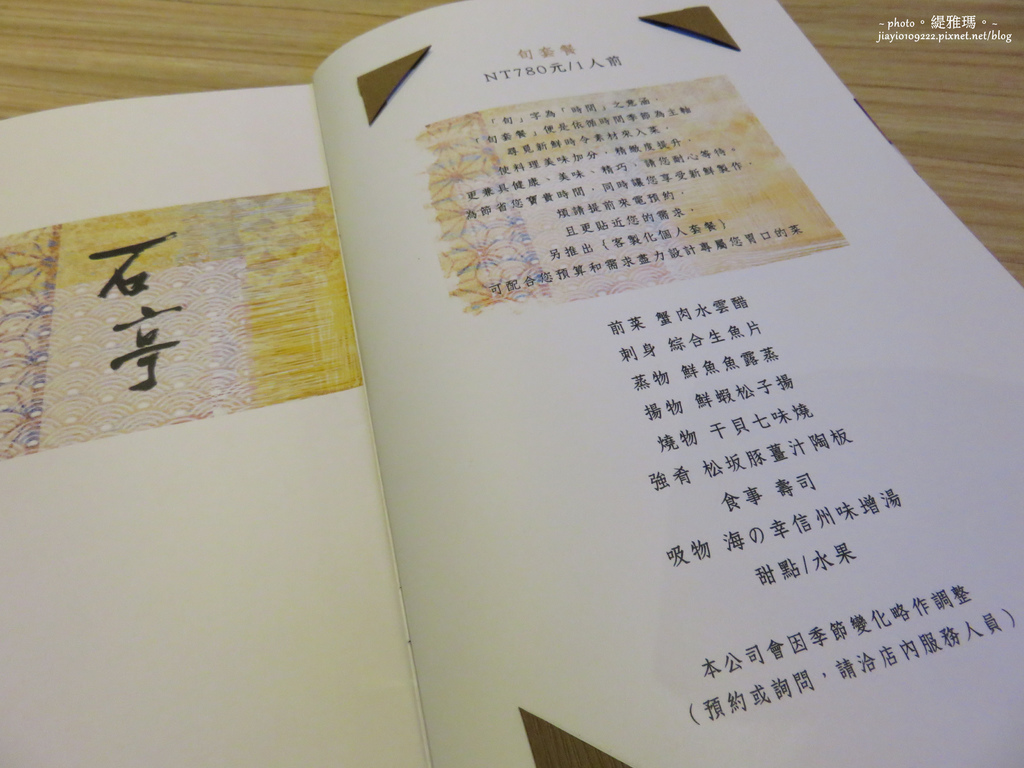 ~ photo。緹雅瑪。~
jiayi0109222.pixnet.net/blog
石亭
旬套餐
NT780元/1人前
「旬」字為「時間」之意涵
「旬套餐」便是依循時間季節為主軸
尋覓新鮮時令素材來入菜，
使料理美味加分，精緻度提升，
更兼具健康、美味、精巧，請您耐心等待。
為節省您寶貴時間，同時讓您享受新鮮製作，
煩請提前來電預約，
且更貼近您的需求，
另推出（客製化個人套餐）
可配合您預算和需求盡力設計專屬您胃口的菜
前菜 蟹肉水雲醋
刺身 綜合生魚片
蒸物 鮮魚魚露蒸
揚物 鮮蝦松子揚
燒物 干貝七味燒
強肴 松坂豚薑汁陶板
食事 壽司
吸物 海の幸信州味增湯
甜點/水果
本公司會因季節變化略作調整
（預約或詢問，請洽店內服務人員）